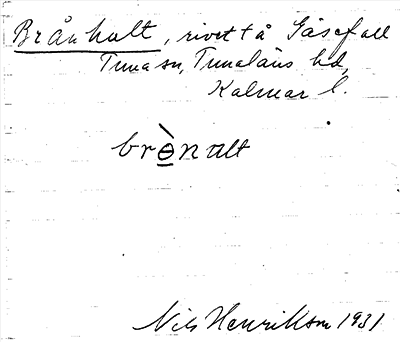 Brånhult, rivet å Gåsefall
Tuna sn, Tunaläns hd,
Kalmar l.
brө̀nult
Nils Henrikson 1931